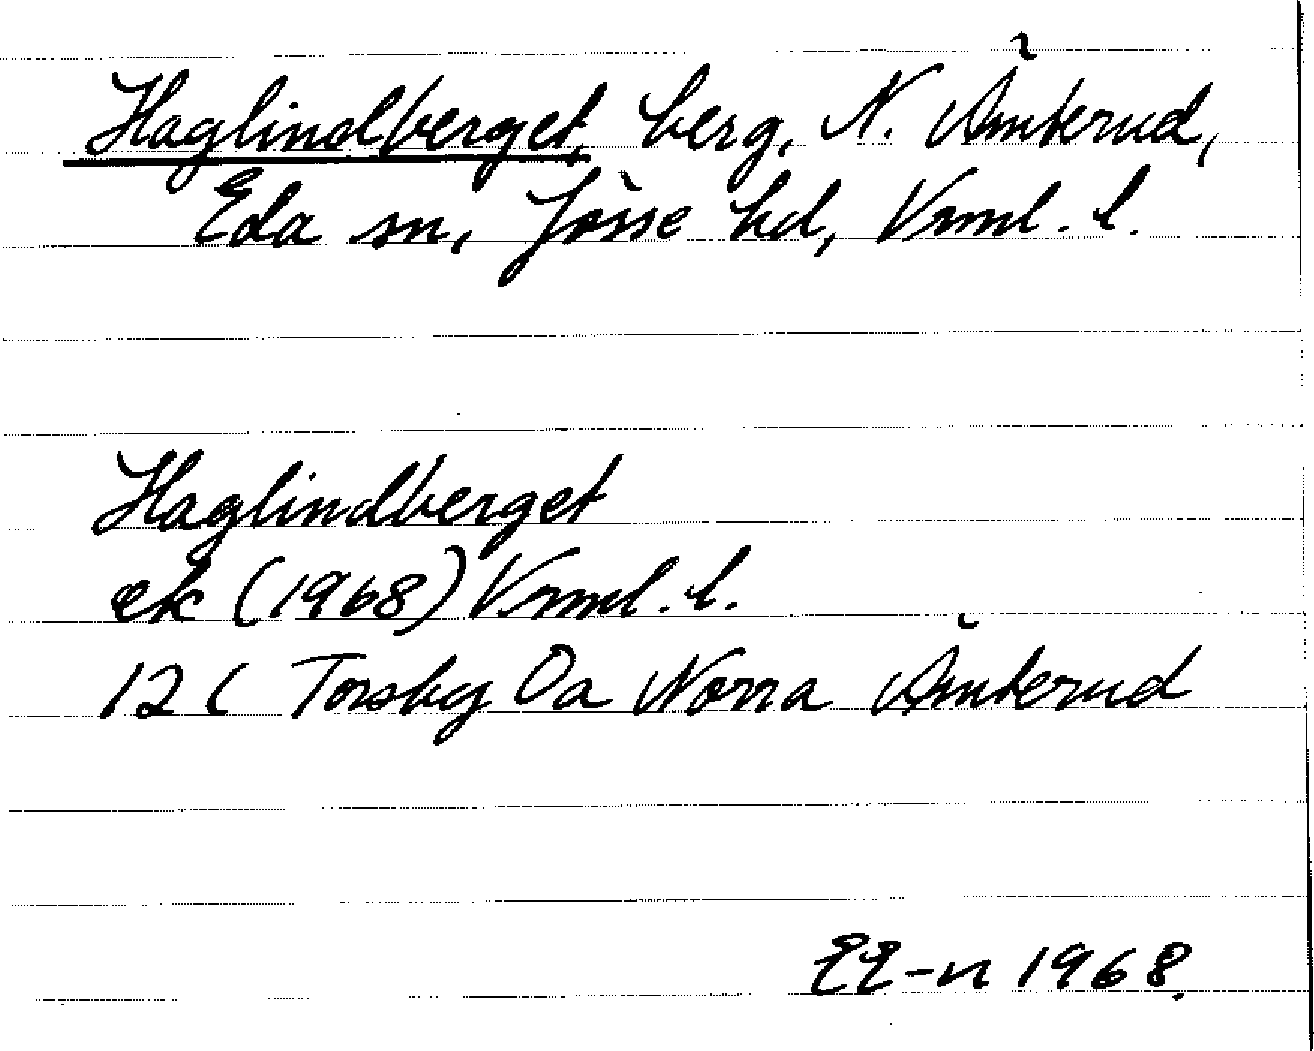 Haglindberget, berg, N. Åmterud,
Eda sn, Jösse hd, Vrml. l.
Haglindberget
ek (1968) Vrml. l.
12 C Torsby Oa Norra Åmterud
EE-n 1968.